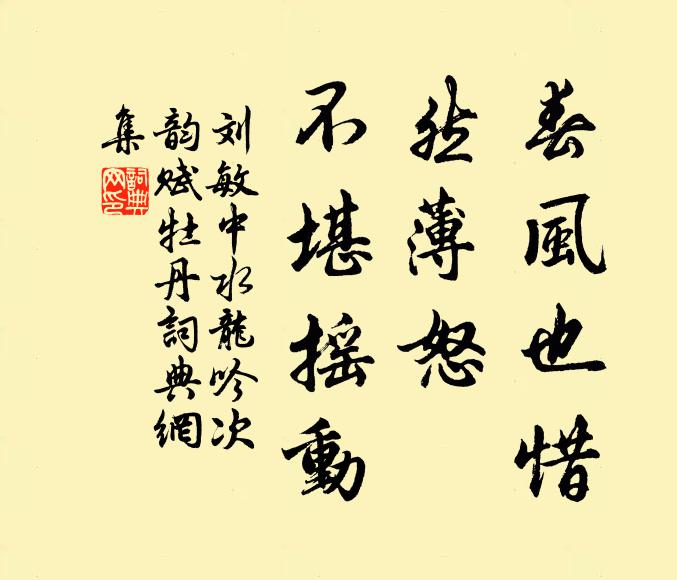 春風也惜
恁薄怒
不堪摇動
刘敏中水龍吟次
韵赋牡丹詞典網
集
詞典
网印